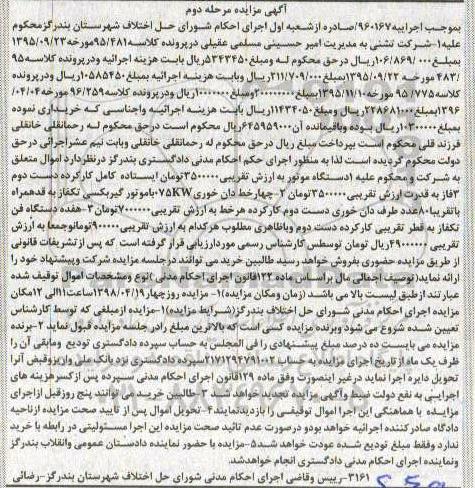 آگهی مزایده مرحله دوم
بموجب اجراییه۹۶۰۱۶۷/صادره ازشعبه اول اجرای احکام شورای حل اختلاف شهرستان بندرگزمحکوم
علیه۱-شرکت تشنی به مدیریت امیر حسینی مسلمی عقیلی درپرونده کلاسه۹۵/۴۸۱مورخه ۱۳۹۵/۰۹/۲۳
بمبلغ ۱۰۶/۸۶۹/۰۰۰ریال درحق محکوم له ومبلغ۵۳۴۳۴۵۰ریال بابت هزینه اجرائیه ودرپرونده کلاسه۹۵
/۴۸۳ مورخه ۱۳۹۵/۰۹/۲۳بمبلغ۲۱۱/۷۰۹/۰۰۰ریال وبابت هزینه اجرائیه بمبلغ۱۰۵۸۵۴۵۰ریال ودرپرونده
کلاسه۹۵/۷۷۵ مورخه۱۳۹۵/۱۱/۱۰بمبلغ ومبلغ ریال ودرپرونده کلاسه۹۶/۲۵۹مورخه۰۴/۰۴/
۱۳۹۶بمبلغ۲۲۸۶۸۱۰۰۰ریال ومبلغ۱۱۴۳۴۰۵۰ریال بابت هزینه اجرائیه واجناسی که خریداری نموده
بمبلغ ریال بوده وباقیمانده آن۶۴۵۹۵۹۰۰۰ریال محکوم است درحق محکوم له رحمانقلی خانقلی
فرزند قلی محکوم است بپرداخت مبلغ ریال درحق محکوم له رحمانقلی خانقلی وبابت نیم عشراجرائی درحق
دولت محکوم گردیده است لذا به منظور اجرای حکم اجرای احکام مدنی دادگستری بندرگز درنظردارد اموال متعلق
به شرکت و محکوم علیه ۱دستگاه موتور به ارزش تقریبی تومان ایستاده کامل کارکرده دست دوم
۳فاز به قدرت ارزش تقریبی ۳۵۰۰۰۰۰تومان ۲-چهارخط دان خوری ۰۷۵KWباموتور گیربکسی تکفاز به قدهمراه
باتقریبا۸۰عدد ظرف دان خوری دست دوم کارکرده هرخط به ارزش تقریبی ۷۰۰۰۰۰۰تومان۳-هفده دستگاه فن
تکفاز به قطر تقریبی کارکرده دست دوم وباظاهری مطلوب هرکدام به ارزش تقریبی۹۰۰۰۰۰تومانوجمعا به ارزش
تقریبی۴۹۰۰۰۰۰۰۰ریال تومان توسطس کارشناس رسمی موردارزیابی قرار گرفته است که پس ازتشریفات قانونی
از طریق مزایده حضوری بفروش خواهد رسید طالبین خرید می توانند درجلسه مزایده شرکت وپیشنهاد خود را
ارائه نماید(توصیف اجمالی مال براساس ماده ۱۲۲قانون اجرای احکام مدنی)نوع ومشخصات اموال توقیف شده
عبارتند ازطبق لیست بالا می باشد (زمان ومکان مزایده)۱- مزایده روزچهار۱۳۹۸/۰۴/۱۹ساعت۱۱الی ۱۲مکان
اجرای احکام مدنی شورای حل اختلاف بندرگز(شرایط مزایده)۱-مزایده ازمبلغی که توسط کارشناس
تعیین شده شروع می شود وبرنده مزایده کسی است که بالاترین مبلغ رادر جلسه مزایده قبول نماید ۲-برنده
مزایده می بایست ده درصد مبلغ پیشنهادی را فی المجلس به حساب سپرده دادگستری تودیع ومابقی آن را
ظرف یک ماه از تاریخ اجرای مزایده به حساب ۲۱۷۱۲۹۴۷۹۱۰۰۲سپرده دادگستری نزد بانک ملی واریزوقبض آنرا
تحویل دایره اجرا نماید درغیر اینصورت وفق ماده ۱۲۹قانون اجرای احکام مدنی سپرده پس ازکسرهزینه های
اجرایتی به نفع دولت ضبط وآگهی مزایده تجدید خواهد شد ۳-طالبین خرید می توانند پنج روزقبل ازاجرای
مزایده با هماهنگی این اجرا اموال توقیفی را بازدیدنمایند۴-تحویل اموال پس از تأیید صحت مزایده ازناحیه
دادگاه صادرکننده اجرائیه خواهد بودو درصورت عدم تائید صحت مزایده این اجرا مسئولیتی در رابطه با خرید
ندارد وفقط مبلغ تودیع شده عودت خواهد شد۵-مزایده با حضور نماینده دادستان عمومی وانقلاب بندرگز
ونماینده اجرای احکام مدنی دادگستری انجام خواهدشد.
۳۱۶۱-رییس وقاضی اجرای احکام مدنی شورای حل اختلاف شهرستان بندرگز-رضائی